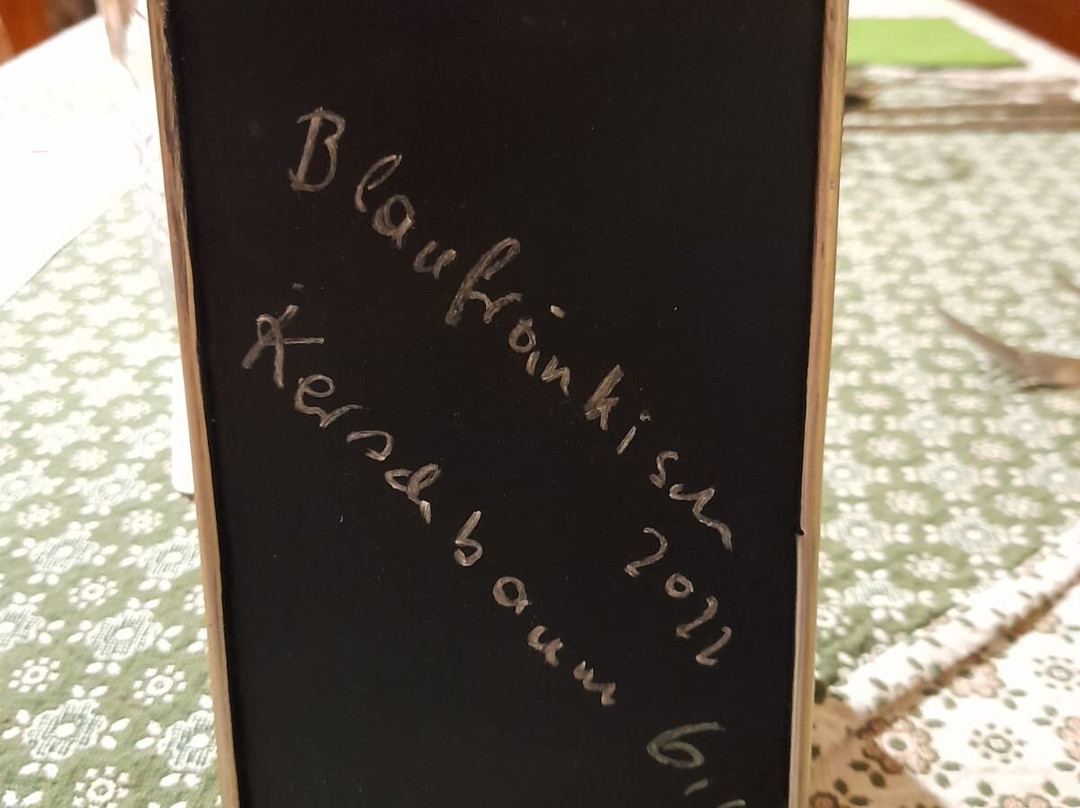 Blaufränkisch
2022
Kerschbaum
6,